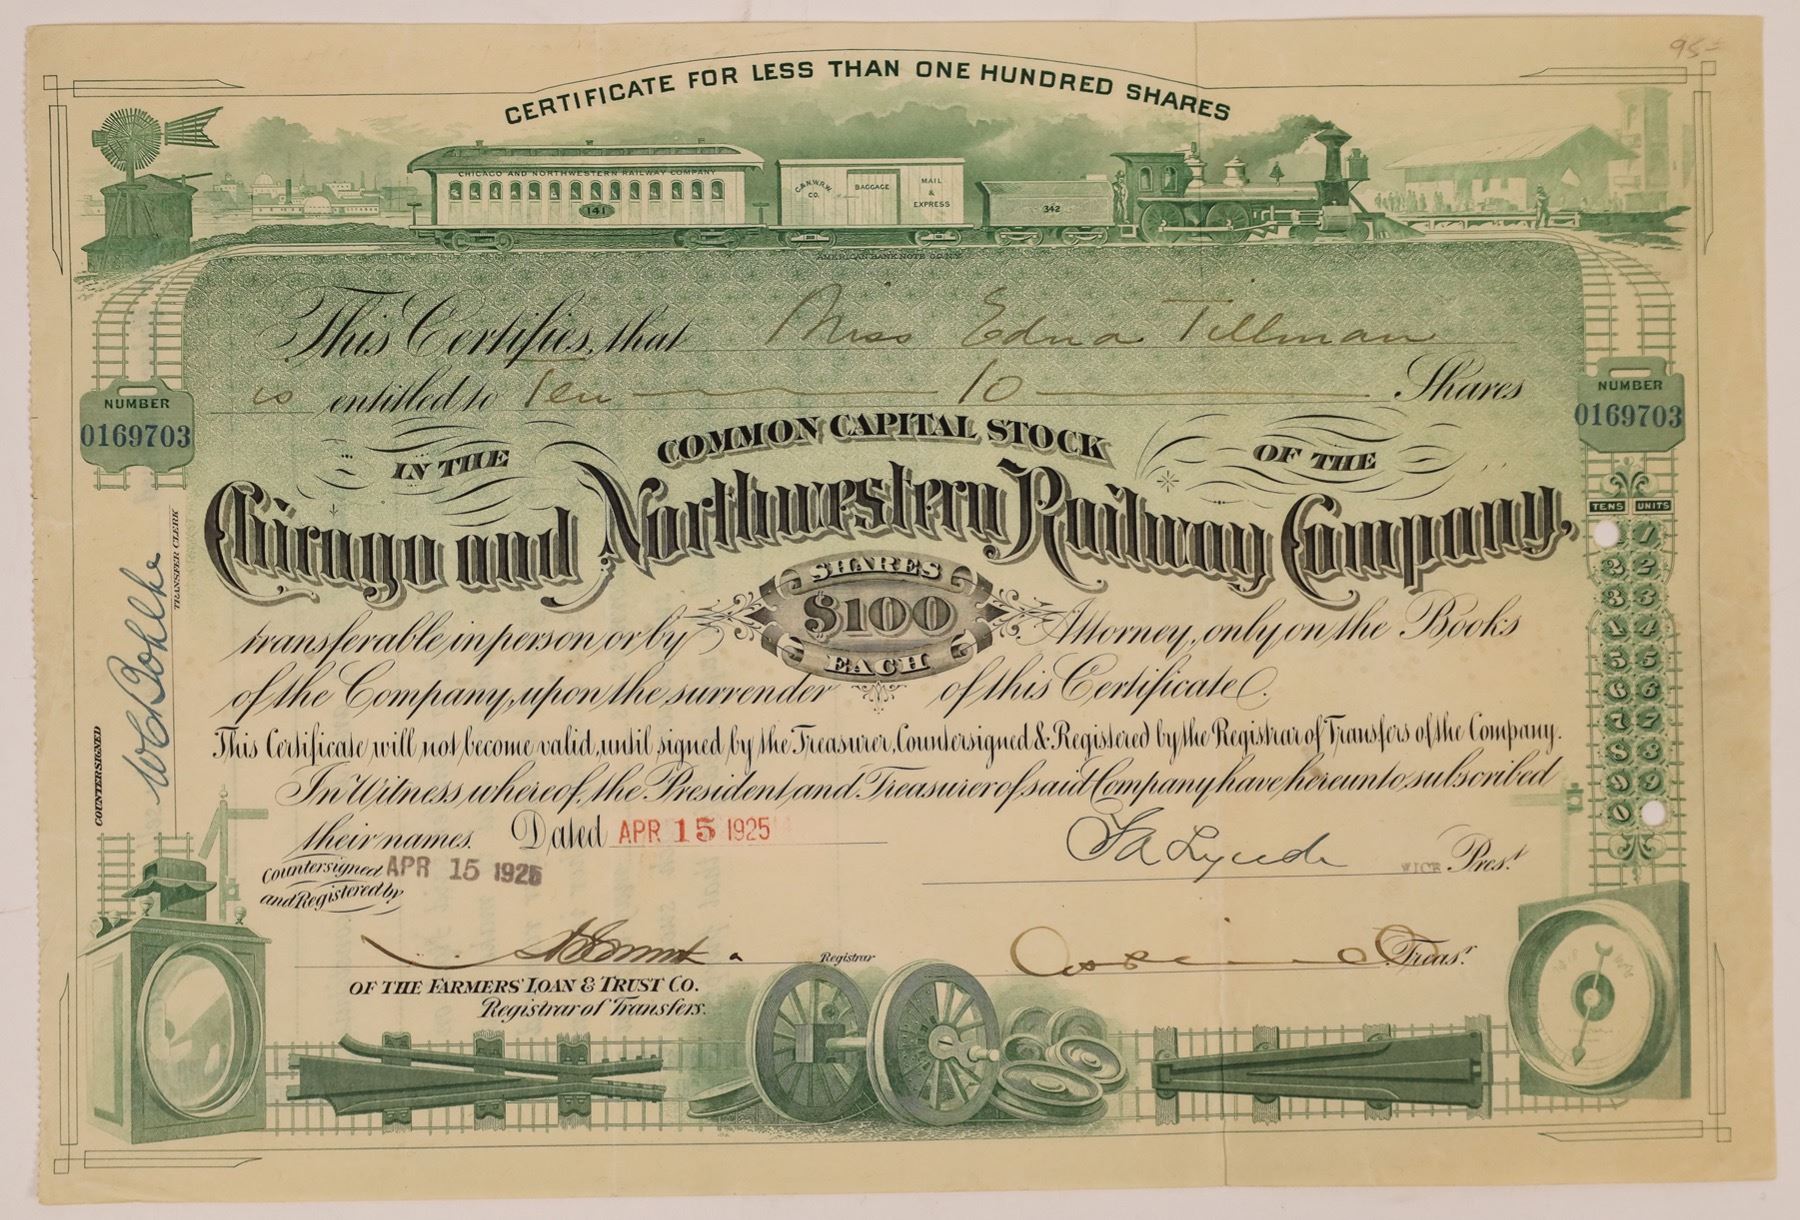 95
CERTIFICATE FOR LESS THAN ONE HUNDRED SHARES
CHICAGO AND NORTHWESTERN RAILWAY COMPANY
141
C.&N.W.R.W. CO.
BAGGAGE
MAIL & EXPRESS
342
AMERICAN BANK NOTE CO. N.Y.
This Certifies, that Miss Edna Tillman
is entitled to Ten 10 Shares
NUMBER
0169703
NUMBER
0169703
IN THE COMMON CAPITAL STOCK OF THE
Chicago and Northwestern Railway Company,
SHARES
$100
EACH
transferable in person or by Attorney, only on the Books
of the Company, upon the surrender of this Certificate.
This Certificate will not become valid, until signed by the Treasurer, Countersigned & Registered by the Registrar of Transfers of the Company.
In Witness whereof, the President and Treasurer of said Company have hereunto subscribed
their names. Dated APR 15 1925
Countersigned APR 15 1925
and Registered by
VICE Pres.t
Registrar
Treas.r
OF THE FARMERS' LOAN & TRUST CO.
Registrar of Transfers.
COUNTERSIGNED
TRANSFER CLERK
TENS UNITS
1
2 2
3 3
4 4
5 5
6 6
7 7
8 8
9 9
0